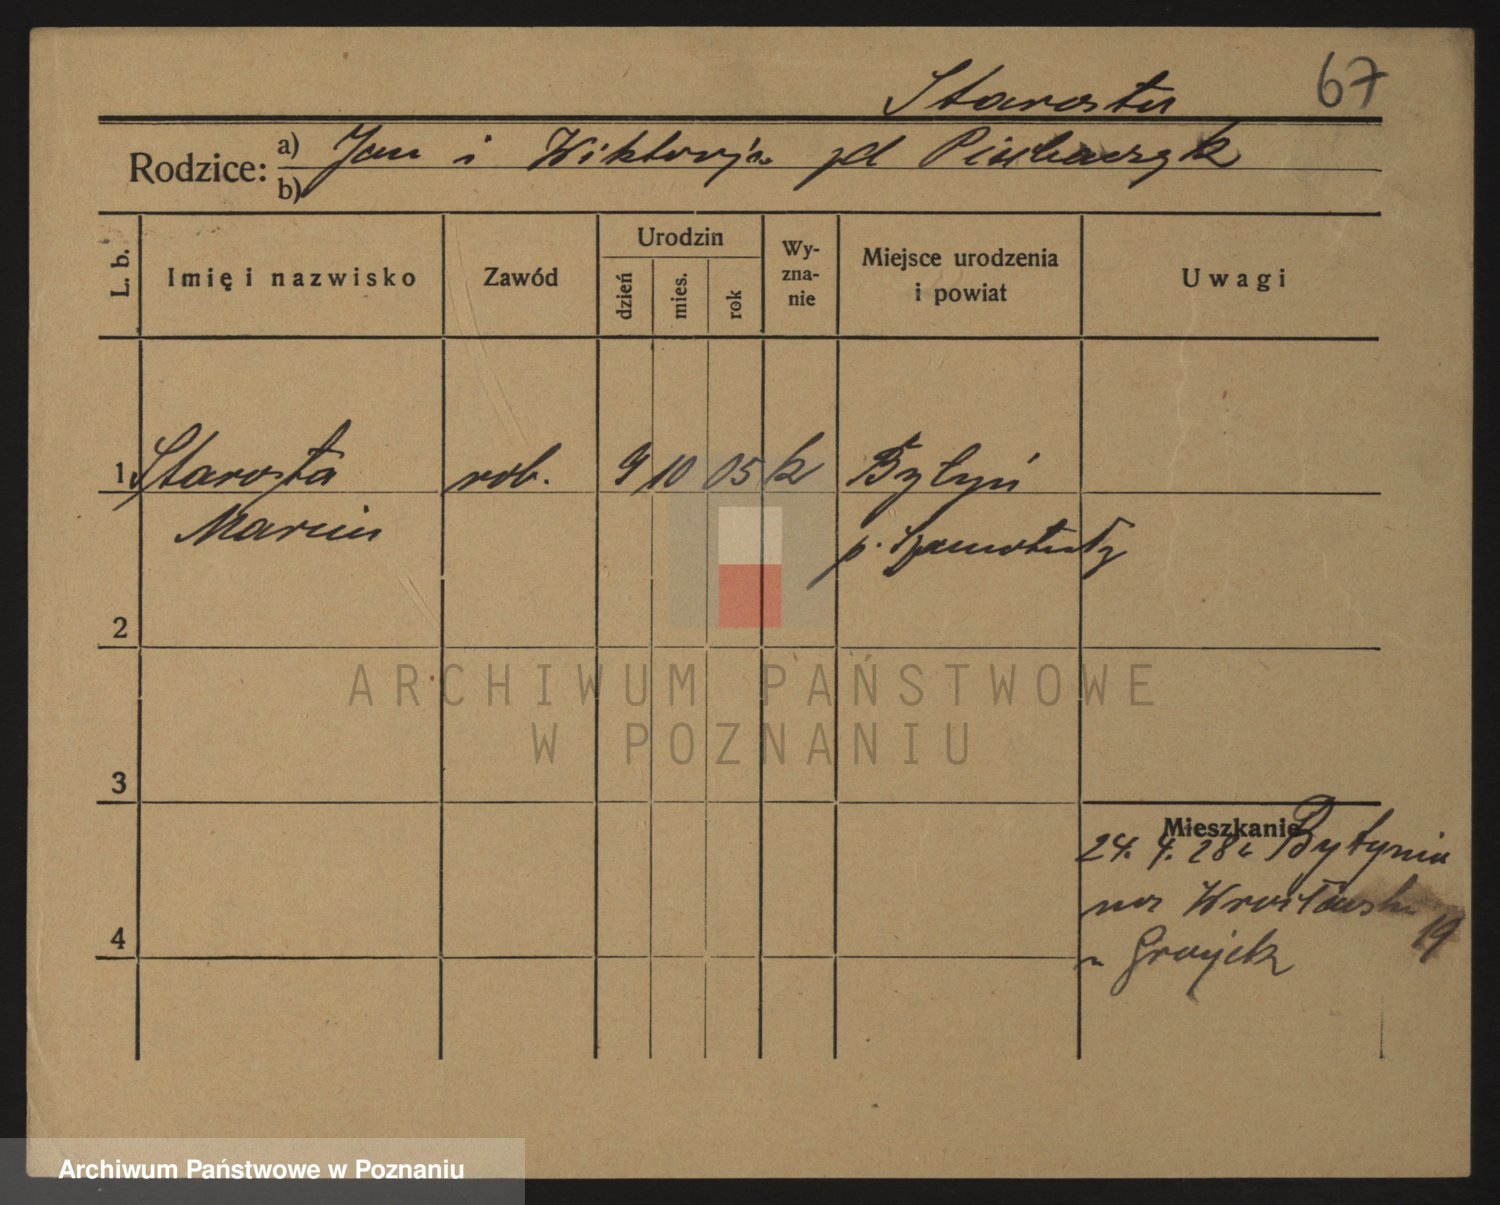 67
Starosta
Rodzice: a) Jan i Wiktorja
b)
L. b.
Imię i nazwisko
Zawód
Urodzin
dzień
mies.
rok
Wy-
zna-
nie
Miejsce urodzenia
i powiat
Uwagi
1 Starosta rob. 9 10 05 k Bytyń
Marcin p. Szamotuły
2
3
Mieszkanie
24. 4. 28 Bytynia
19
4
ARCHIWUM PAŃSTWOWE
W POZNANIU
Archiwum Państwowe w Poznaniu